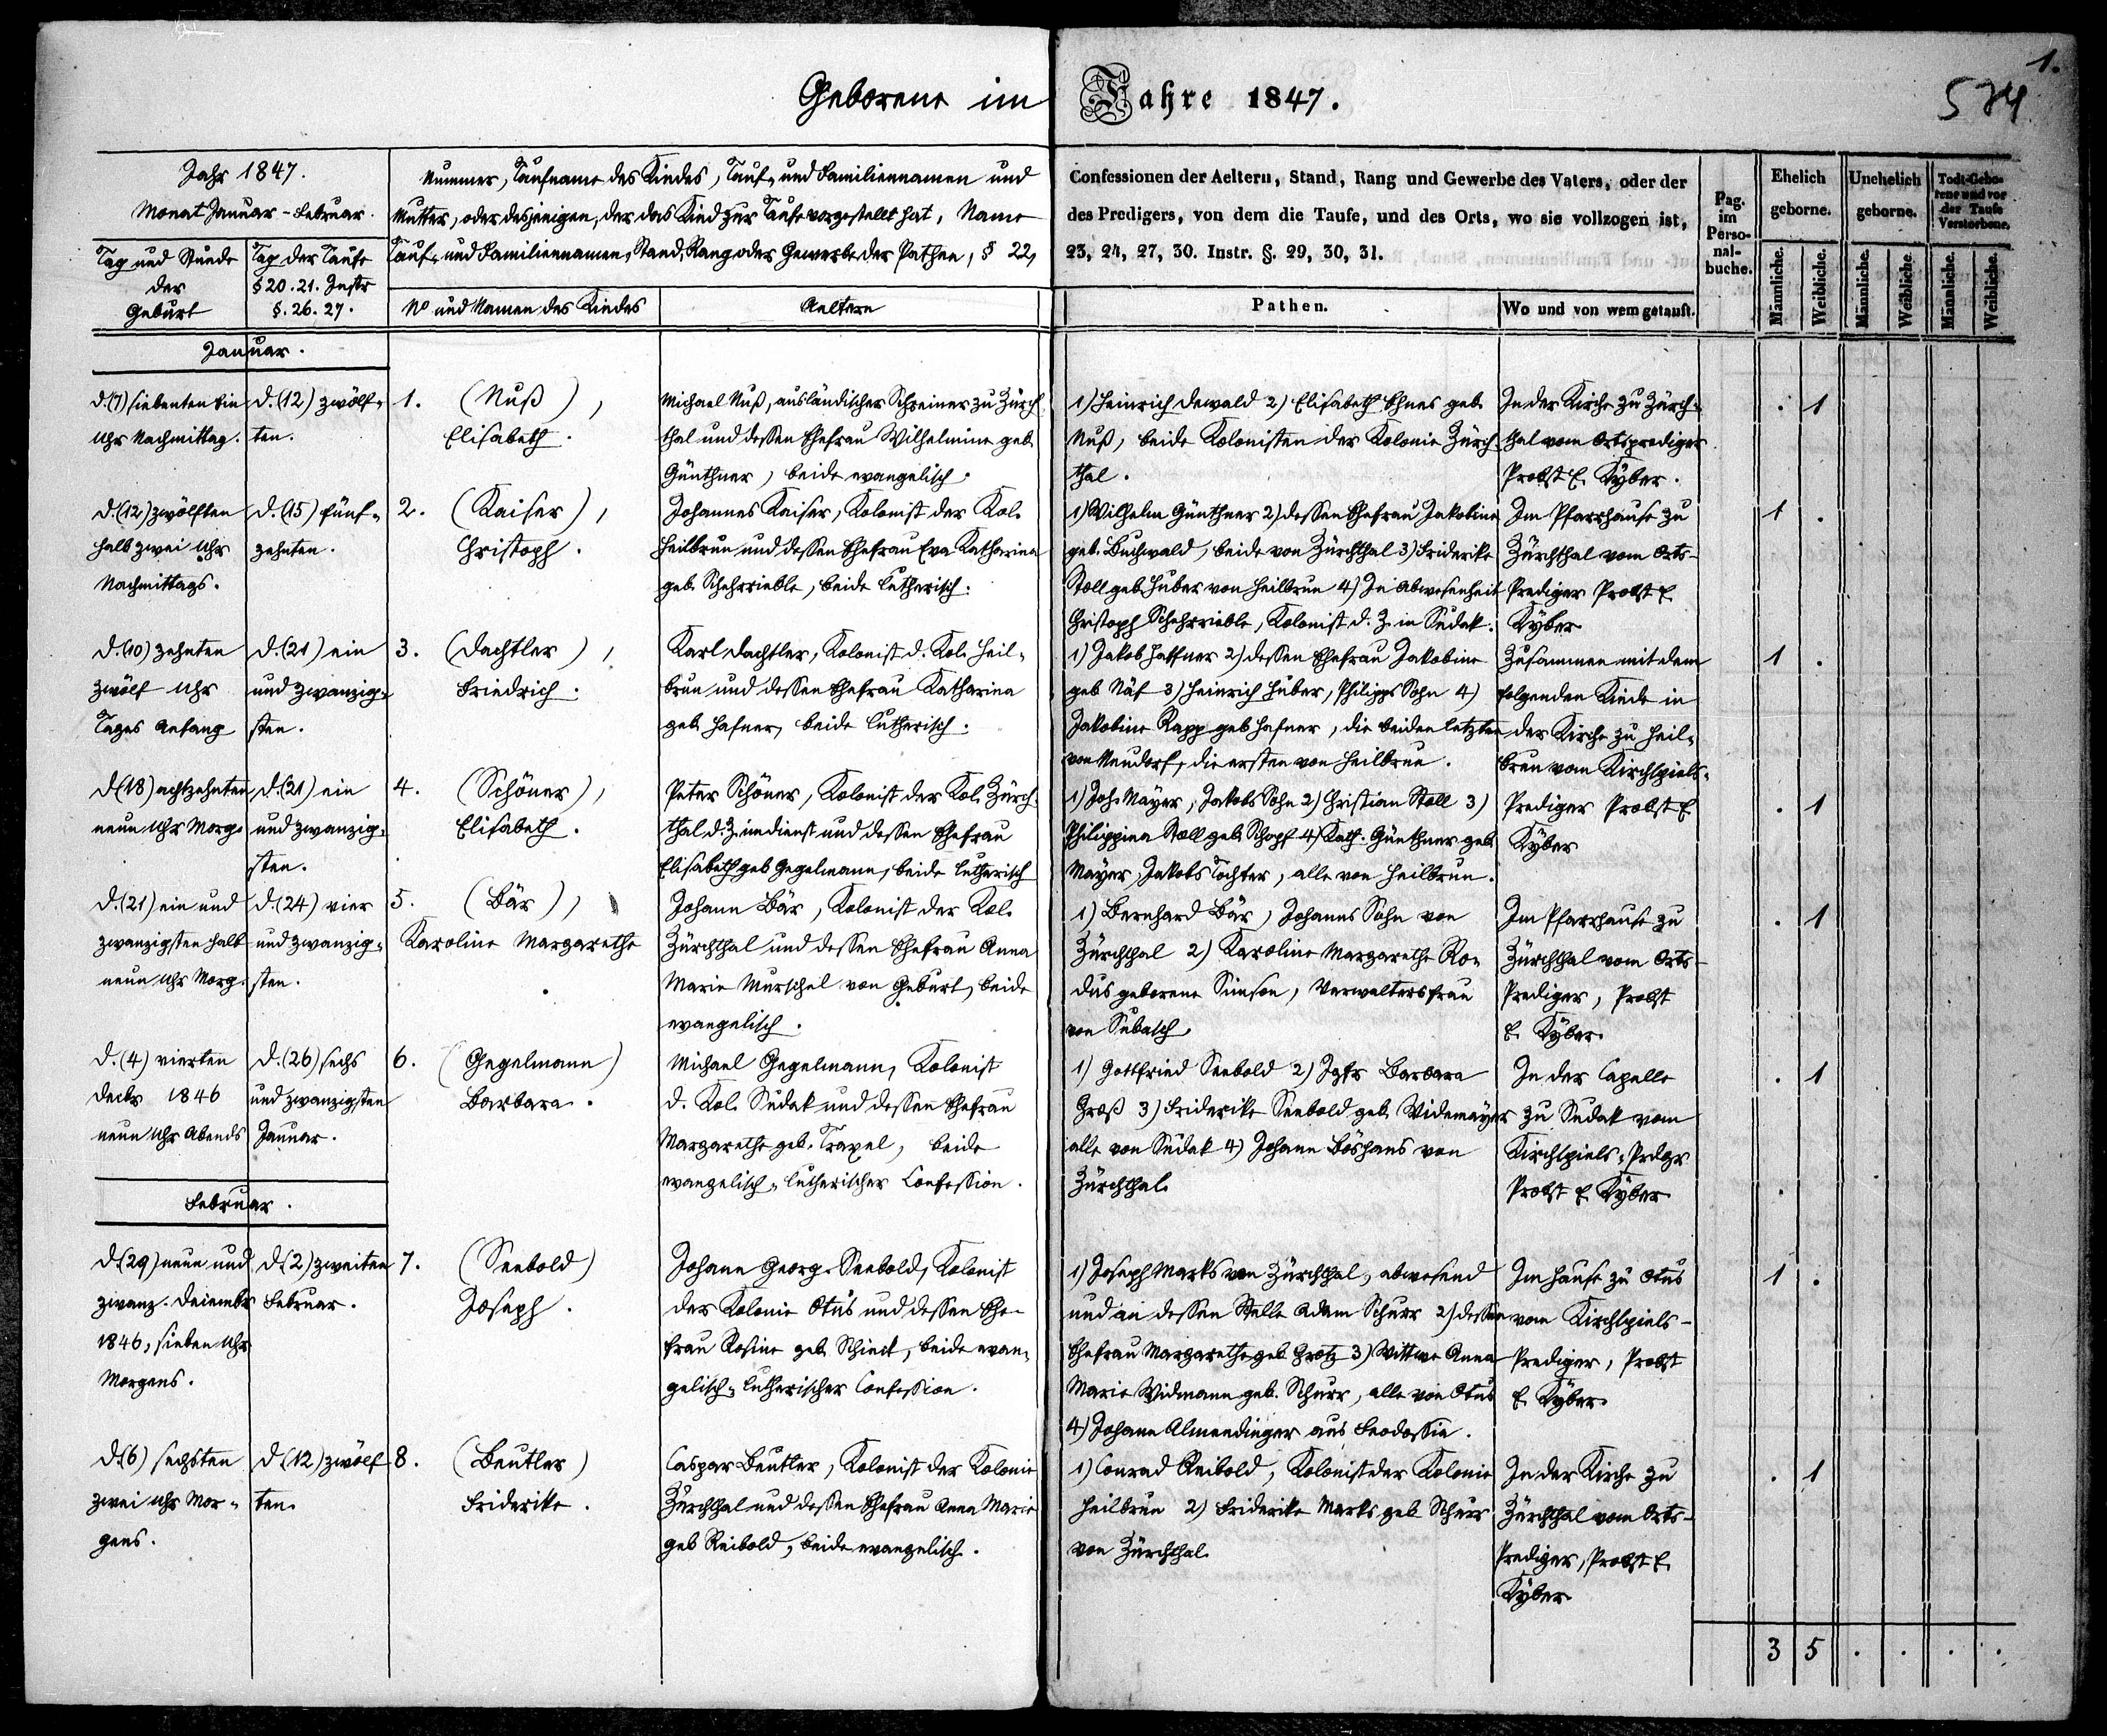 1.
Geborene im Jahre 1847.
574
Jahr 1847.
Monat Januar - Februar.
Tag und Stunde
der
Geburt
Tag der Taufe
§ 20. 21. Instr
§. 26. 27.
Nummer, Taufname des Kindes, Tauf- und Familiennamen und
Mutter, oder desjenigen, der das Kind zur Taufe vorgestellt hat, Name
Tauf- und Familiennamen, Stand, Rang oder Gewerbe der Pathen, § 22,
No und Namen des Kindes
Aeltern
Confessionen der Aeltern, Stand, Rang und Gewerbe des Vaters, oder der
des Predigers, von dem die Taufe, und des Orts, wo sie vollzogen ist,
23, 24, 27, 30. Instr. §. 29, 30, 31.
Pathen.
Wo und von wem getauft.
Pag.
im
Perso-
nal-
buche.
Ehelich
geborne.
Unehelich
geborne.
Todt-Gebo-
rene und vor
der Taufe
Verstorbene.
Männliche.
Weibliche.
Männliche.
Weibliche.
Männliche.
Weibliche.
Januar.
d. (7) siebenten ein
Uhr Nachmittag.
d. (12) zwölf-
ten.
1. (Nuß),
Elisabeth.
Michael Nuß, ausländischer Schreiner zu Zürch
thal und dessen Ehefrau Wilhelmine geb.
Günthner, beide evangelisch.
1) Heinrich Dewald 2) Elisabeth Ehnes geb.
Nuß, beide Kolonisten der Kolonie Zürch
thal.
In der Kirche zu Zürch-
thal vom Ortsprediger
Probst E. Kyber.
. 1
d. (12) zwölften
halb zwei Uhr
Nachmittags.
d. (15) fünf-
zehnten.
2. (Kaiser),
Christoph.
Johannes Kaiser, Kolonist der Kol.
Heilbrun und dessen Ehefrau Eva Katharina
geb. Schehrrieble, beide lutherisch.
1) Wilhelm Günthner 2) dessen Ehefrau Jakobine
geb. Buchwald, beide von Zürchthal 3) Friderike
Stoll geb. Huber von Heilbrun 4) In Abwesenheit
Christoph Schehrrieble, Kolonist d. Z. in Sudak.
Im Pfarrhause zu
Zürchthal vom Orts-
Prediger Probst E.
Kyber
1 .
d. (10) zehnten
zwölf Uhr
Tages Anfang
d. (21) ein
und zwanzig-
sten.
3. (Dachtler),
Friedrich.
Karl Dachtler, Kolonist d. Kol. Heil-
brun und dessen Ehefrau Katharina
geb. Hafner, beide lutherisch.
1) Jakob Haffner 2) dessen Ehefrau Jakobine
geb Näf 3) Heinrich Huber, Philipps Sohn 4)
Jakobine Rapp geb Hafner, die beiden letzten
von Neudorf, die ersten von Heilbrun.
Zusammen mit dem
folgenden Kinde in
der Kirche zu Heil-
brun vom Kirchspiels-
1 .
d. (18) achtzehnten
neun Uhr Morg.
d. (21) ein
und zwanzig-
sten.
4. (Schöner),
Elisabeth.
Peter Schöner, Kolonist der Kol. Zürch-
thal d. Z. im Dienst und dessen Ehefrau
Elisabeth geb Gegelmann, beide lutherisch
1) Joh. Mayer, Jakobs Sohn 2) Christian Stoll 3)
Philippina Stoll geb. Schopf 4) Kath. Günthner geb.
Mayer, Jakobs Tochter, alle von Heilbrun.
Prediger Probst E.
Kyber
. 1
d. (21) ein und
zwanzigsten halb
neun Uhr Morg.
d. (24) vier
und zwanzig-
sten.
5. (Bär),
Karoline Margarethe
Johann Bär, Kolonist der Kol.
Zürchthal und dessen Ehefrau Anna
Marie Murschel von Geburt, beide
evangelisch.
1) Bernhard Bär, Johanns Sohn von
Zürchthal 2) Karoline Margarethe Ro-
dus geborene Simson, Verwaltersfrau
von Subasch.
Im Pfarrhause zu
Zürchthal vom Orts-
Prediger, Probst
E. Kyber.
. 1
d. (4) vierten
Decbr 1846
neun Uhr Abends
d. (26) sechs
und zwanzigsten
Januar.
6. (Gegelmann)
Barbara.
Michael Gegelmann, Kolonist
d. Kol. Sudak und dessen Ehefrau
Margarethe geb. Traxel, beide
evangelisch-lutherischer Confession.
1) Gottfried Seebold 2) Jgfr Barbara
Groß 3) Friderike Seebold geb. Widemayer
alle von Sudak 4) Johann Böshans von
Zürchthal.
In der Capelle
zu Sudak vom
Kirchspiels-Prdgr
Probst E. Kyber
. 1
Februar.
d. (29) neun und
zwanz. Dezembr
1846, sieben Uhr
Morgens.
d. (2) zweiten
Februar.
7. (Seebold)
Joseph.
Johann Georg Seebold, Kolonist
der Kolonie Otus und dessen Ehe-
frau Rosine geb Schieck, beide evan-
gelisch-lutherischer Confession.
1) Joseph Marks von Zürchthal, abwesend
und an dessen Stelle Adam Schurr 2) dessen
Ehefrau Margarethe geb Grotz 3) Wittwe Anna
Marie Widmann geb. Schurr, alle von Otus
4) Johann Almendinger aus Feodossia.
Im Hause zu Otus
vom Kirchspiels-
Prediger, Probst
E. Kyber.
1 .
d. (6) sechsten
zwei Uhr Mor-
gens.
d. (12) zwölf
ten.
8. (Beutler)
Friderike.
Caspar Beutler, Kolonist der Kolonie
Zürchthal und dessen Ehefrau Anna Marie
geb Reibold, beide evangelisch.
1) Conrad Reibold, Kolonist der Kolonie
Heilbrun 2) Friderike Marks geb Schurr
von Zürchthal.
In der Kirche zu
Zürchthal vom Orts-
Prediger, Probst E.
Kyber
. 1
3 5 . . . .